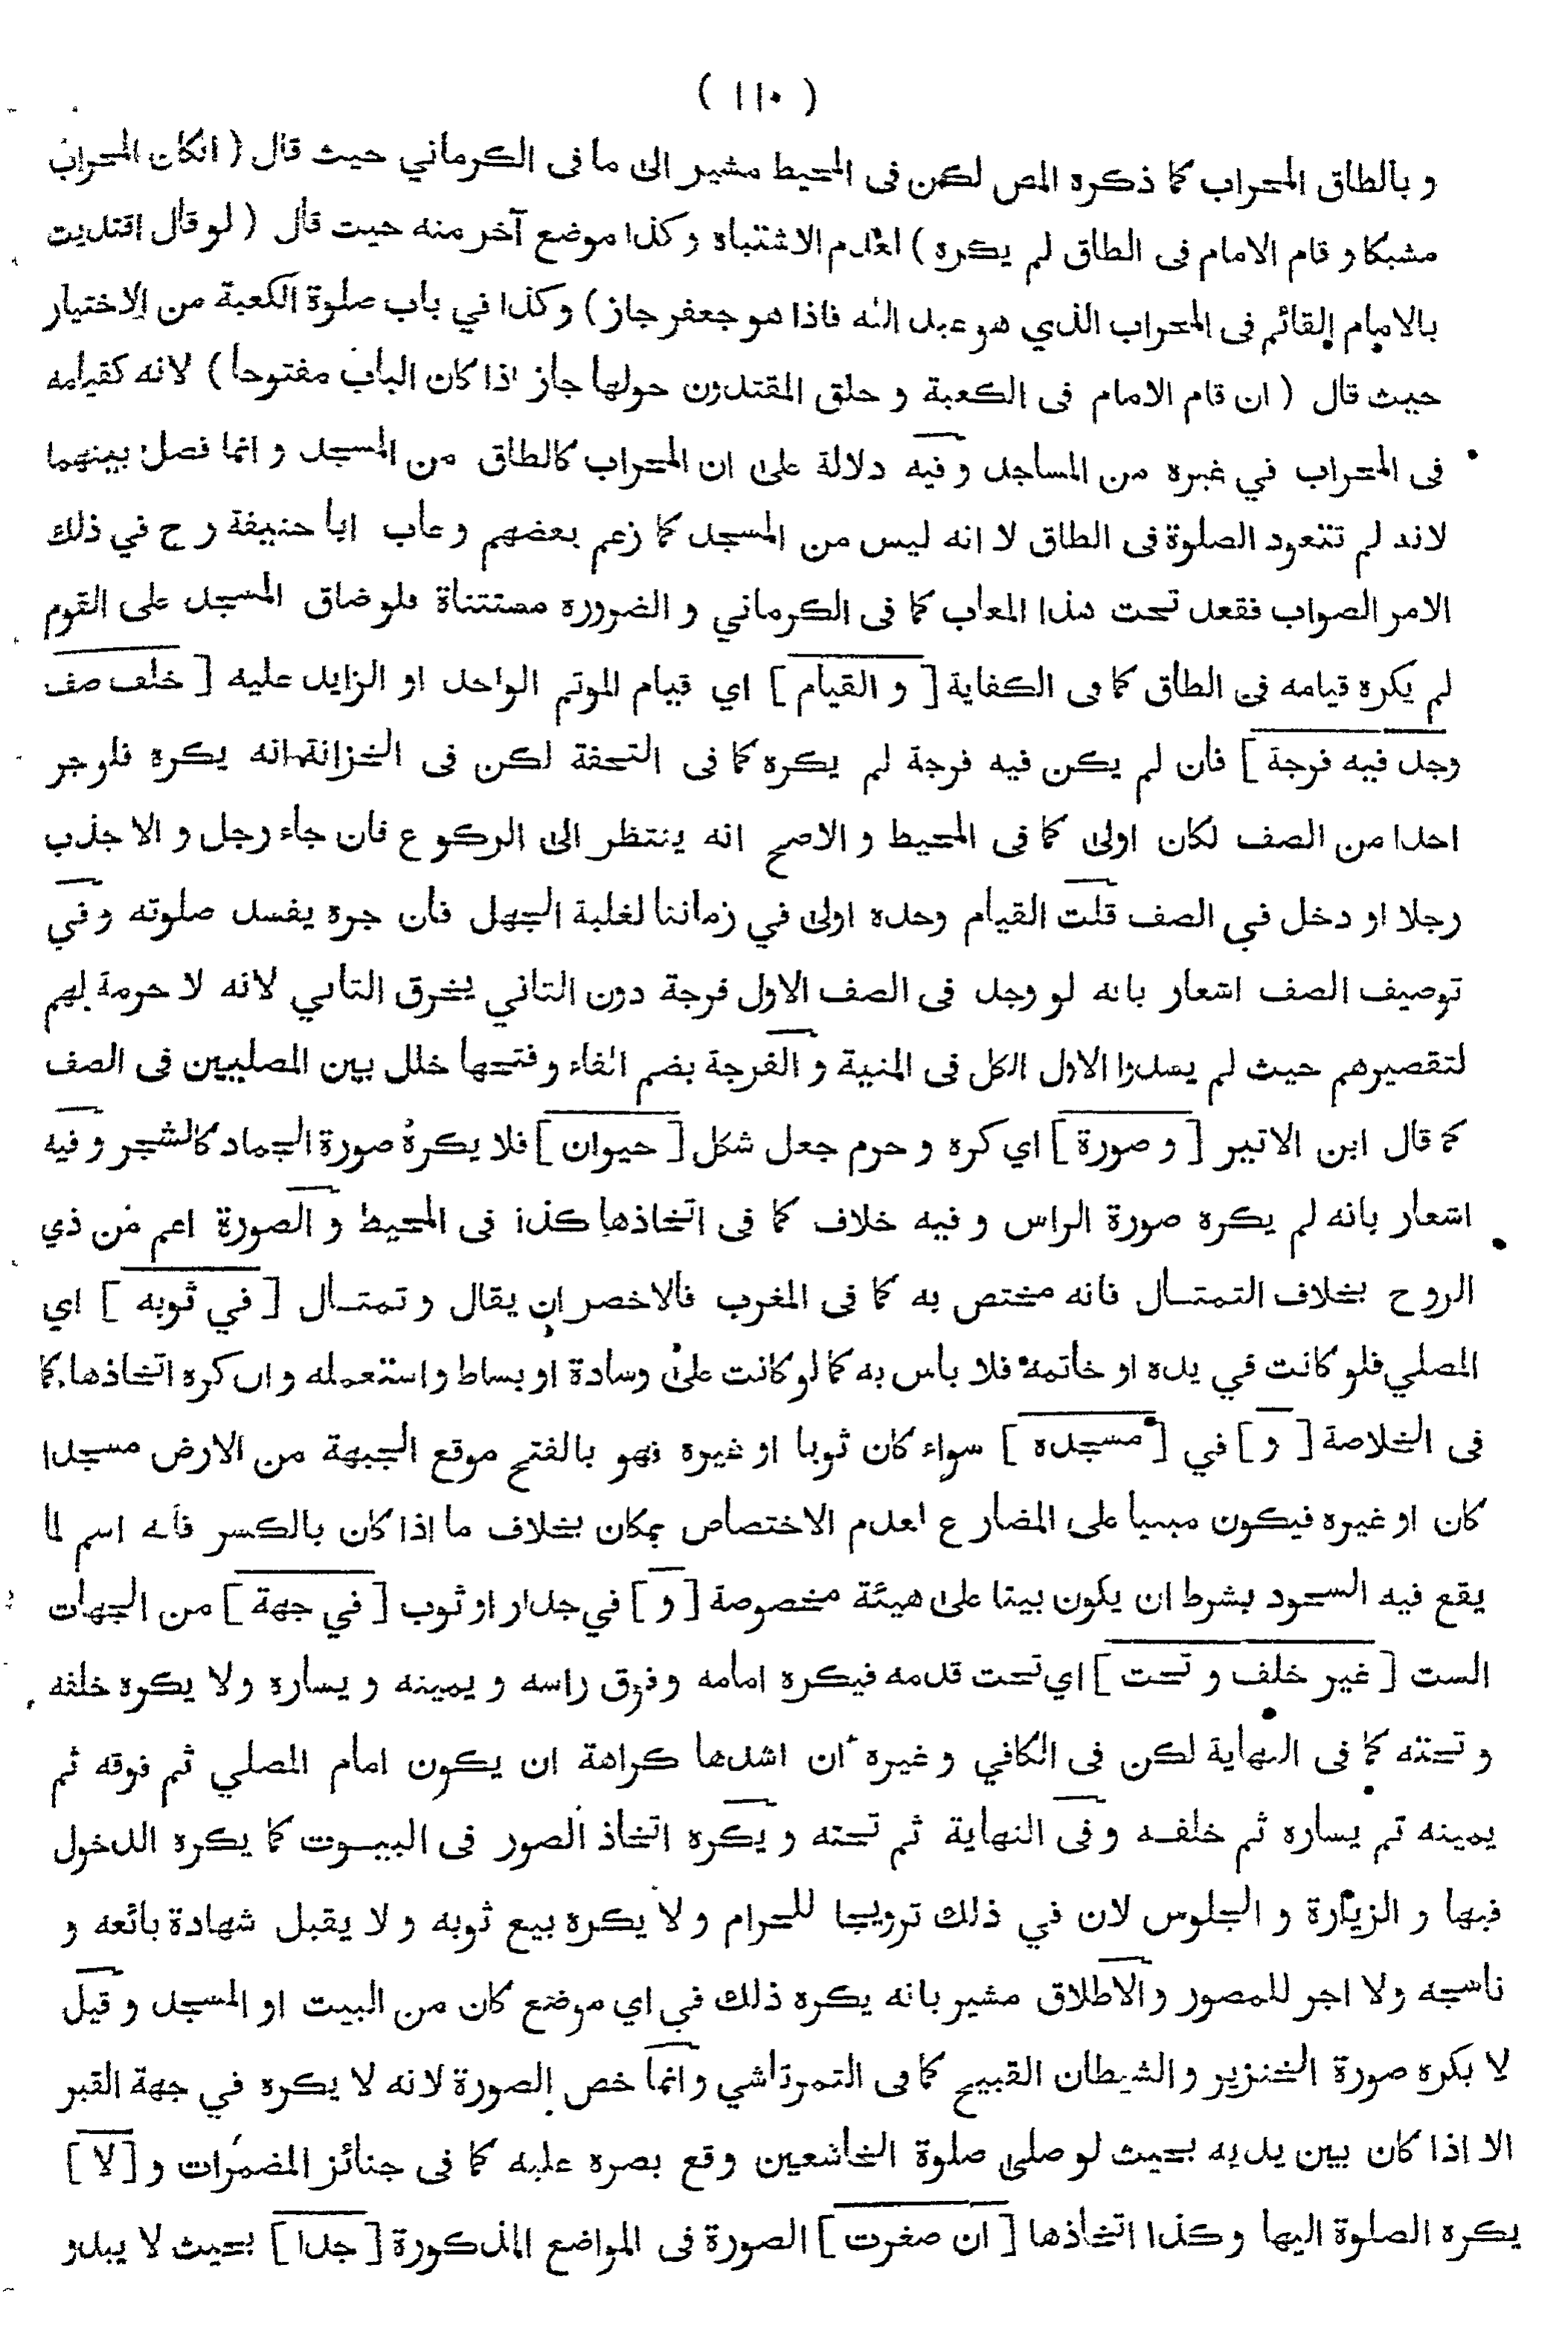 ( ١١٠ )
و بالطاق المحراب كما ذكره المص لكن فى المحيط مشير الى ما فى الكرماني حيث قال ( انكان المحراب
مشبكا و قام الامام فى الطاق لم يكره ) لعدم الاشتباه و كذا موضع آخر منه حيث قال ( لو قال اقتديت
بالامام القائم فى المحراب الذي هو عبد الله فاذا هو جعفر جاز ) و كذا في باب صلوة الكعبة من الاختيار
حيث قال ( ان قام الامام فى الكعبة و حلق المقتدون حولها جاز اذا كان الباب مفتوحا ) لانه كقيامه
فى المحراب في غيره من المساجد و فيه دلالة على ان المحراب كالطاق من المسجد و انما فصل بينهما
لانه لم تتعود الصلوة فى الطاق لا انه ليس من المسجد كما زعم بعضهم و عاب ابا حنيفة ر ح في ذلك
الامر الصواب فقعد تحت هذا المعاب كما فى الكرماني و الضرورة مستثناة فلو ضاق المسجد على القوم
لم يكره قيامه فى الطاق كما فى الكفاية [ و القيام ] اي قيام الموتم الواحد او الزايد عليه [ خلف صف
وجد فيه فرجة ] فان لم يكن فيه فرجة لم يكره كما فى التحفة لكن فى الخزانة انه يكره فلو جر
احدا من الصف لكان اولى كما فى المحيط و الاصح انه ينتظر الى الركوع فان جاء رجل و الا جذب
رجلا او دخل في الصف قلت القيام وحده اولى في زماننا لغلبة الجهل فان جره يفسد صلوته و في
توصيف الصف اشعار بانه لو وجد فى الصف الاول فرجة دون الثاني يخرق الثاني لانه لا حرمة لهم
لتقصيرهم حيث لم يسدوا الاول الكل فى المنية و الفرجة بضم الفاء و فتحها خلل بين المصليين فى الصف
كما قال ابن الاثير [ و صورة ] اي كره و حرم جعل شكل [ حيوان ] فلا يكره صورة الجماد كالشجر و فيه
اشعار بانه لم يكره صورة الراس و فيه خلاف كما فى اتخاذها كذا فى المحيط و الصورة اعم من ذي
الروح بخلاف التمثــال فانه مختص به كما فى المغرب فالاخصر ان يقال و تمثــال [ في ثوبه ] اي
المصلي فلو كانت في يده او خاتمه فلا باس به كما لو كانت على وسادة او بساط و استعمله و ان كره اتخاذها كما
فى الخلاصة [ و ] في [ مسجده ] سواء كان ثوبا او غيره فهو بالفتح موقع الجبهة من الارض مسجدا
كان او غيره فيكون مبنيا على المضارع لعدم الاختصاص بمكان بخلاف ما اذا كان بالكسر فانه اسم لما
يقع فيه السجود بشرط ان يكون بيتا على هيئة مخصوصة [ و ] في جدار او ثوب [ في جهة ] من الجهات
الست [ غير خلف و تحت ] اي تحت قدمه فيكره امامه و فوق راسه و يمينه و يساره ولا يكره خلفه
و تحته كما فى النهاية لكن فى الكافي و غيره ان اشدها كراهة ان يكون امام المصلي ثم فوقه ثم
يمينه ثم يساره ثم خلفــه و فى النهاية ثم تحته و يكره اتخاذ الصور فى البيــوت كما يكره الدخول
فيها و الزيارة و الجلوس لان في ذلك ترويجا للحرام و لا يكره بيع ثوبه و لا يقبل شهادة بائعه و
ناسجه ولا اجر للمصور و الاطلاق مشير بانه يكره ذلك في اي موضع كان من البيت او المسجد و قيل
لا يكره صورة الخنزير و الشيطان القبيح كما فى التمرتاشي و انما خص الصورة لانه لا يكره في جهة القبر
الا اذا كان بين يديه بحيث لو صلى صلوة الخاشعين وقع بصره عليه كما فى جنائز المضمرات و [ لا ]
يكره الصلوة اليها و كذا اتخاذها [ ان صغرت ] الصورة فى المواضع المذكورة [ جدا ] بحيث لا يبدو